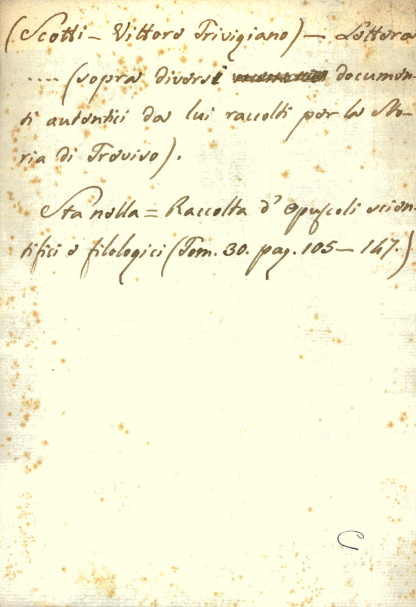 (Scotti - Vittore Trivigiano) - Lettera
.... (sopra diversi documen-
ti autentici da lui raccolti per la Sto-
ria di Treviso).
Sta nella = Raccolta d' opuscoli scien-
tifici e filologici (Tom. 30. pag. 105 - 147.)
C